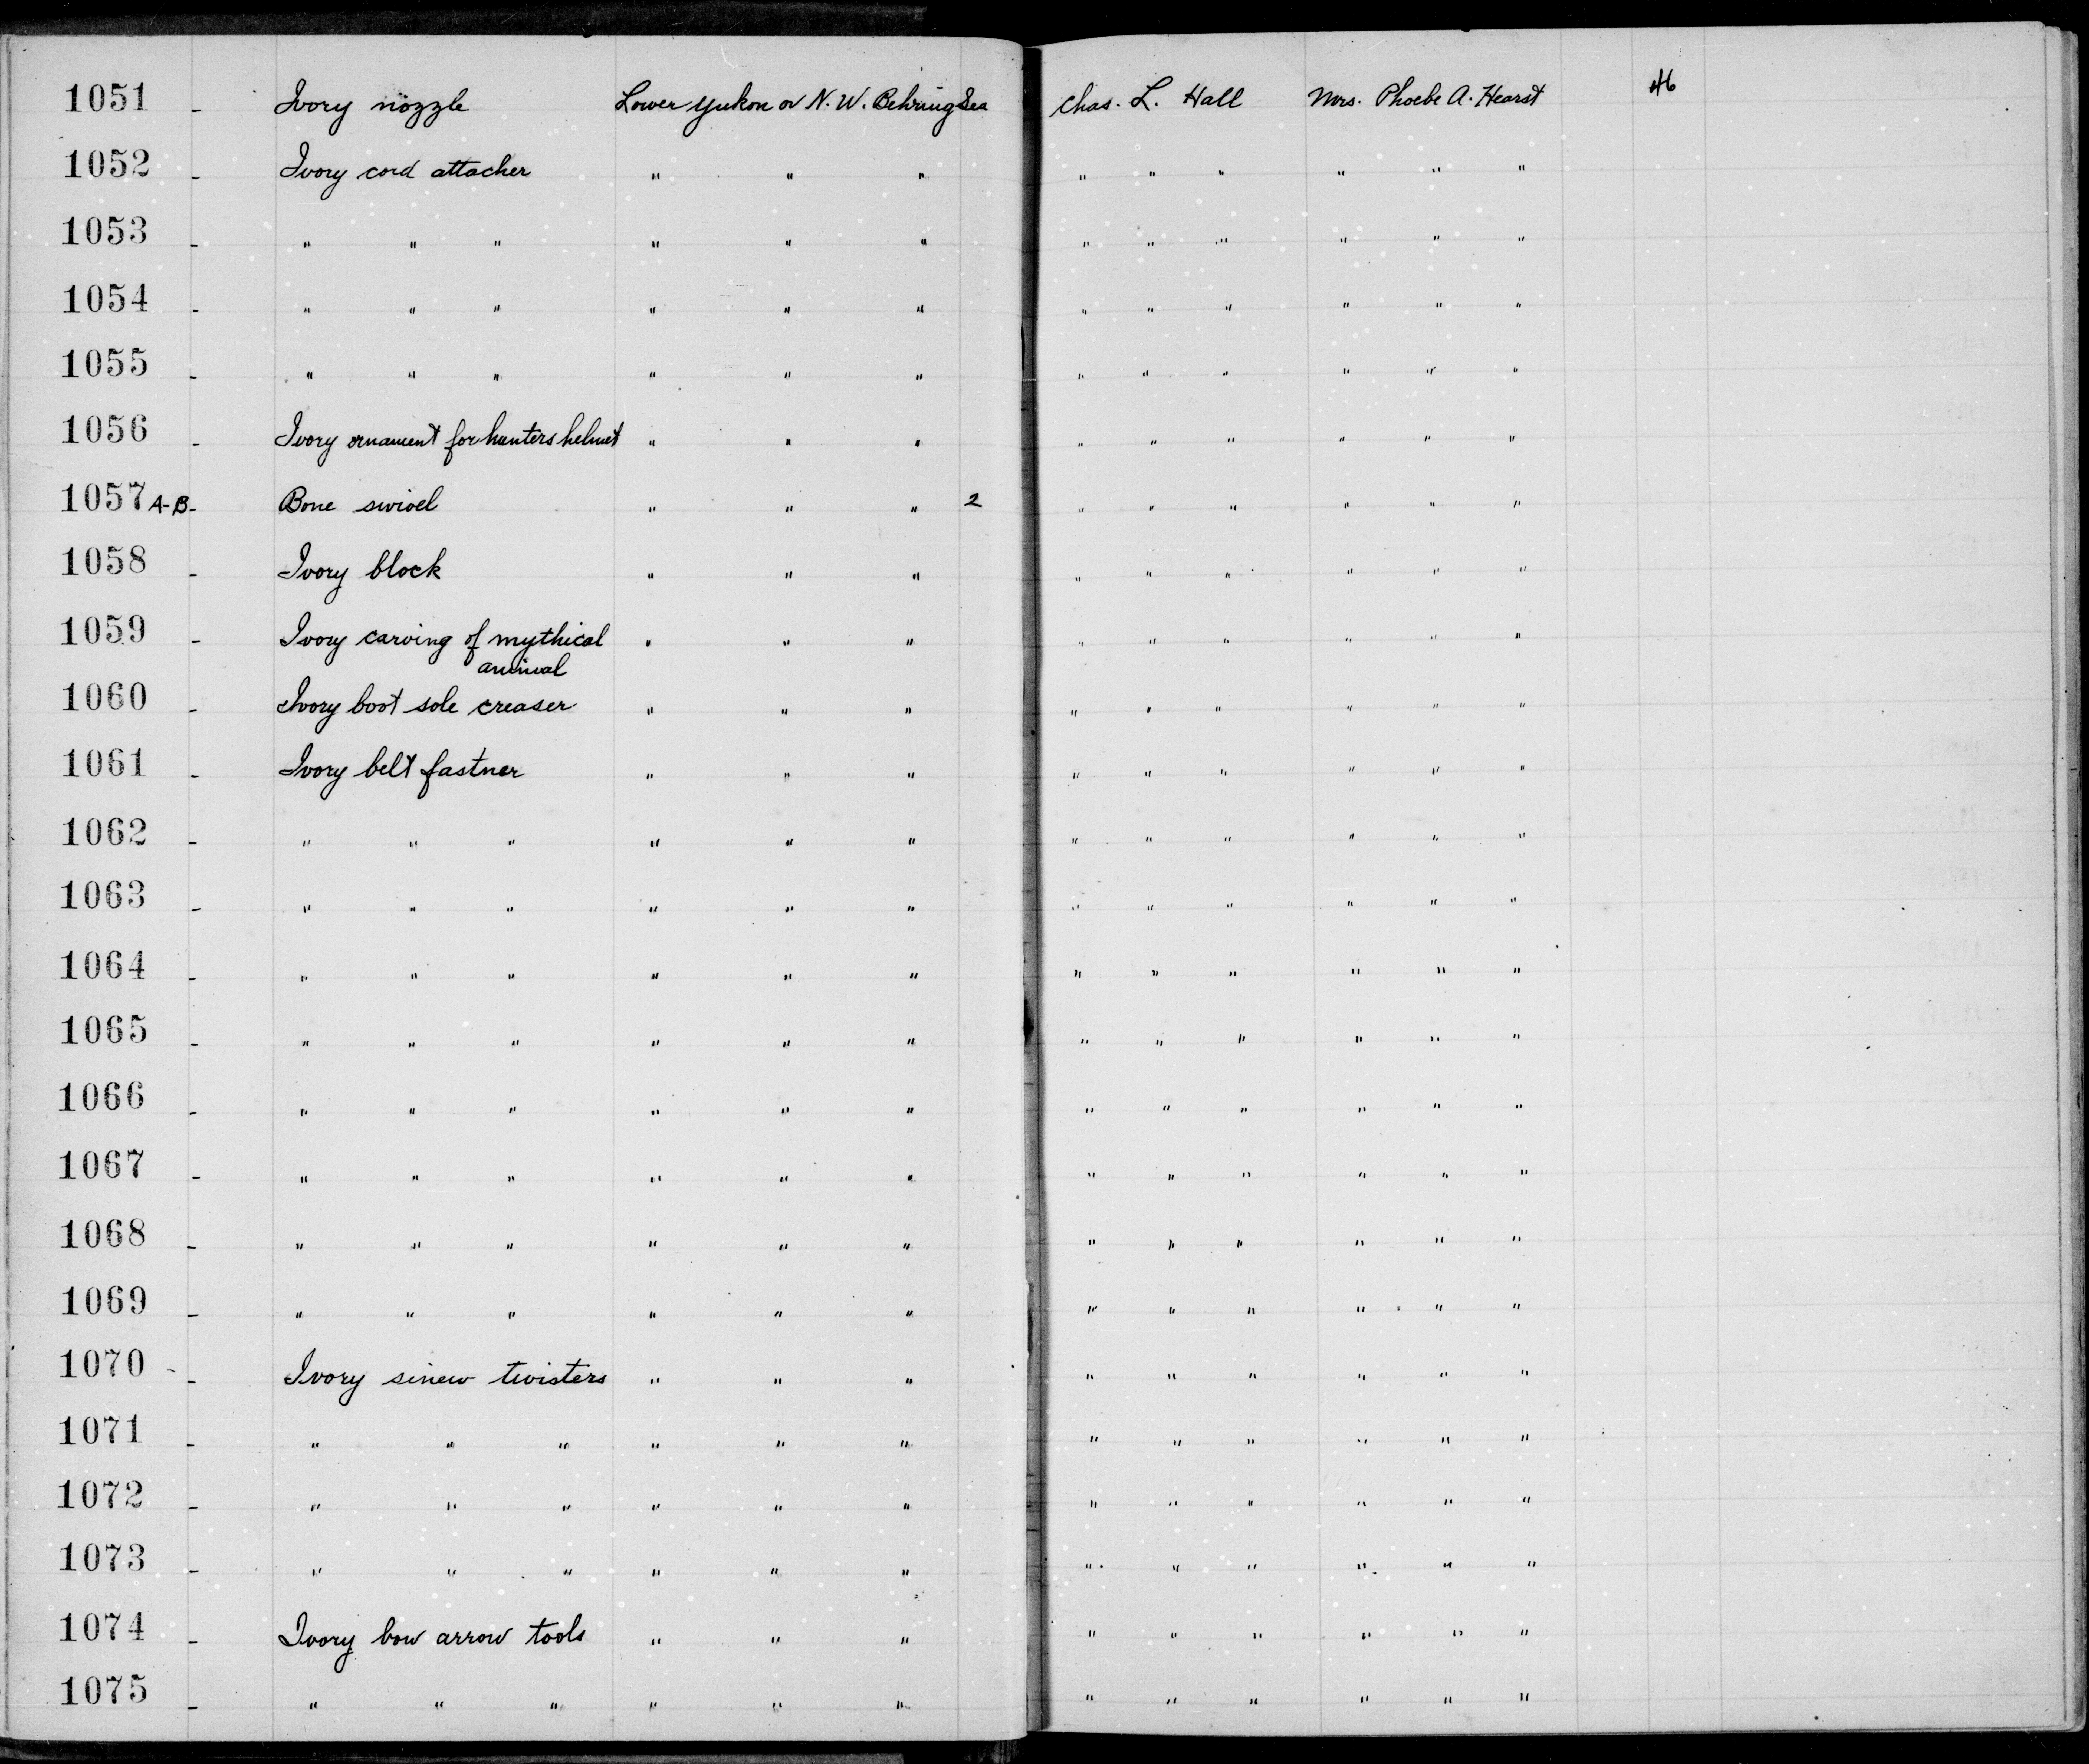 1051 - Ivory nozzle Lower Yukon or N. W. Behring Sea Chas. L. Hall Mrs. Phoebe A. Hearst 46
1052 - Ivory cord attacher " " " " " " " " "
1053 - " " " " " " " " " " " "
1054 - " " " " " " " " " " " "
1055 - " " " " " " " " " " " "
1056 - Ivory ornament for hunters helmet " " " " " " " " "
1057 A-B - Bone swivel " " " 2 " " " " " "
1058 - Ivory block " " " " " " " " "
1059 - Ivory carving of mythical " " " " " " " " "
animal
1060 - Ivory boot sole creaser " " " " " " " " "
1061 - Ivory belt fastner " " " " " " " " "
1062 - " " " " " " " " " " " "
1063 - " " " " " " " " " " " "
1064 - " " " " " " " " " " " "
1065 - " " " " " " " " " " " "
1066 - " " " " " " " " " " " "
1067 - " " " " " " " " " " " "
1068 - " " " " " " " " " " " "
1069 - " " " " " " " " " " " "
1070 - Ivory sinew twisters " " " " " " " " "
1071 - " " " " " " " " " " " "
1072 - " " " " " " " " " " " "
1073 - " " " " " " " " " " " "
1074 - Ivory bow arrow tools " " " " " " " " "
1075 - " " " " " " " " " " " "